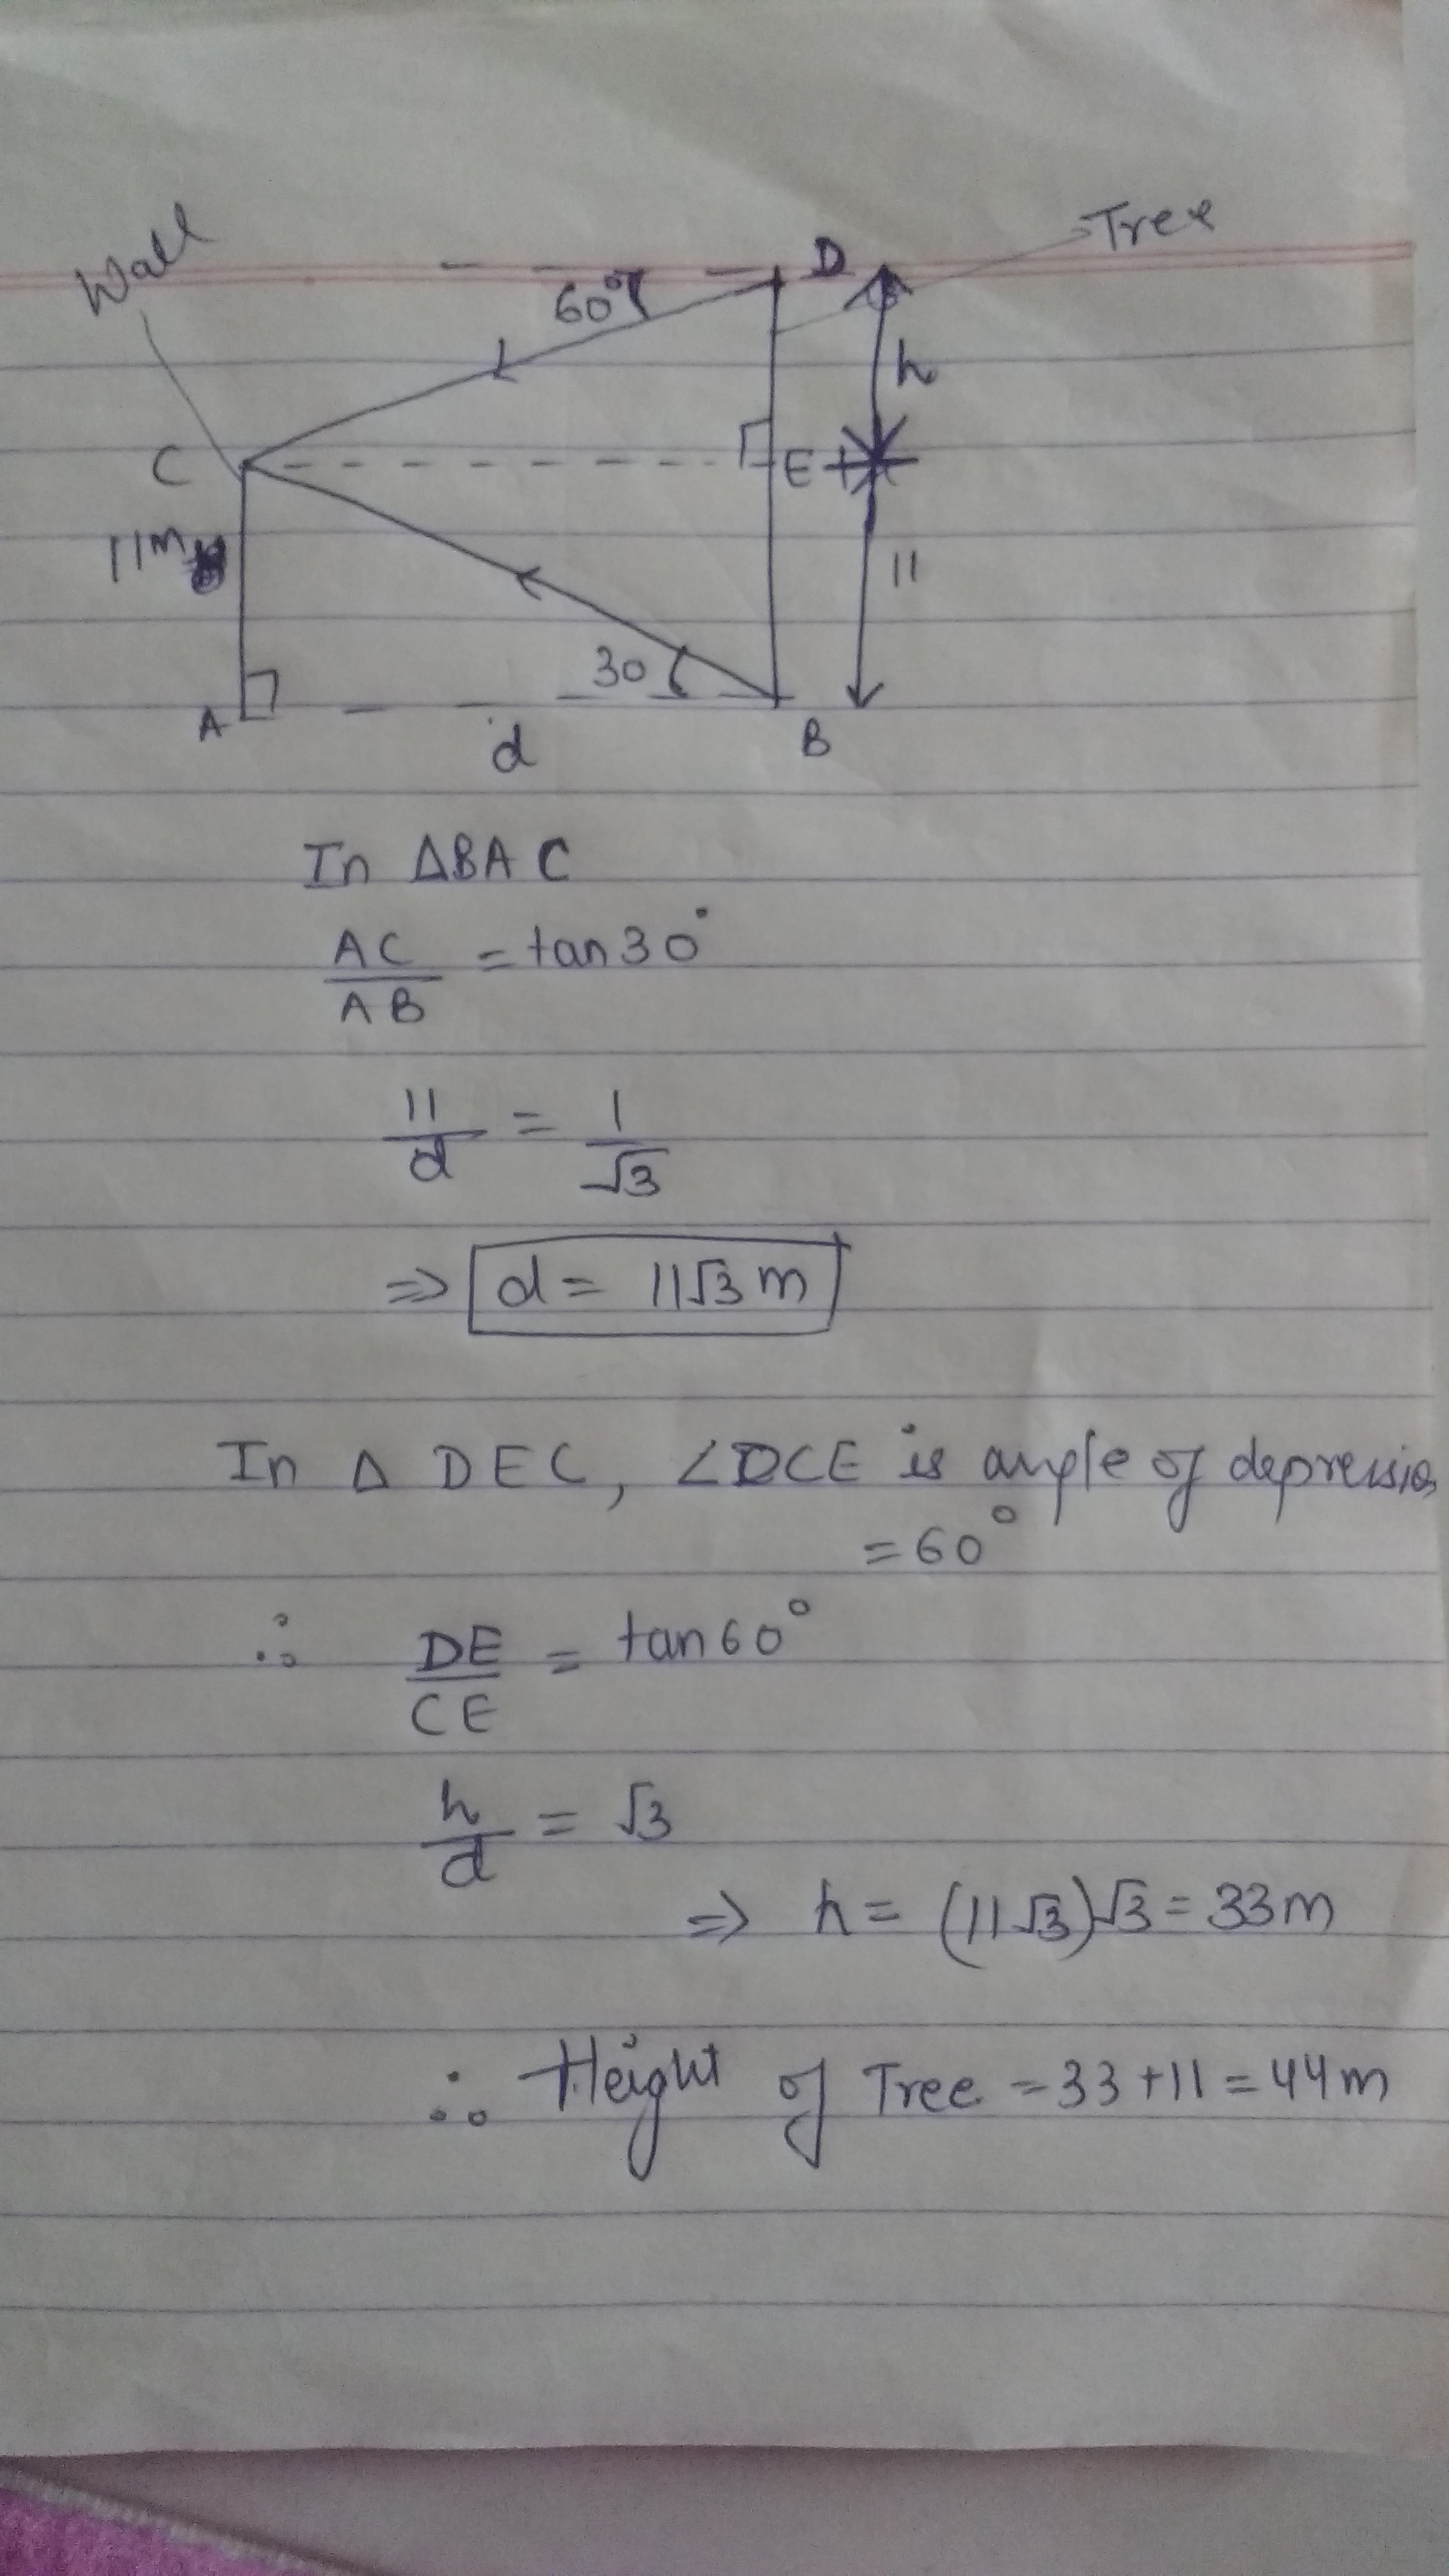 Wall
Tree
D
60°
h
C
E
11m
11
30
A
d
B
In ΔBAC
AC/AB = tan30°
11/d = 1/√3
⇒ d = 11√3 m
In Δ DEC, ∠DCE is angle of depression
= 60°
∴ DE/CE = tan60°
h/d = √3
⇒ h = (11√3)√3 = 33m
∴ Height of Tree = 33+11 = 44m